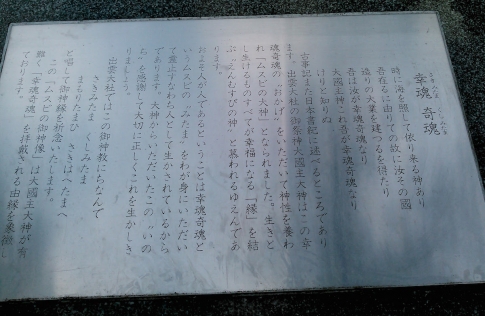 幸魂 奇魂
さきみたま くしみたま
時に海を照して依り来る神あり
吾在るに由りての故に汝その國
造りの大業を建つるを得たり
吾は汝が幸魂奇魂なり
大國主神これ吾が幸魂奇魂なり
けりと知りぬ
古事記また日本書紀に述べるところであり
ます。出雲大社の御祭神大國主大神はこの幸
魂奇魂の“おかげ”をいただいて神性を養わ
れ「ムスビの大神」となられました。生きと
し生けるものすべてが幸福になる「縁」を結
ぶ“えんむすびの神”と慕われるゆえんであ
ります。
およそ人が人であるということは幸魂奇魂と
いうムスビの“みたま”をわが身にいただい
て霊止すなわち人として生かされているから
であります。大神からいただいたこの“いの
ち”を感謝して大切に正しくこれを生かしき
りましょう。
出雲大社ではこの御神教にちなんで
さきみたま くしみたま
まもりたまひ さきはへたまへ
と唱して御神縁を祈念いたします。
この「ムスビの御神像」は大國主大神が有
難く「幸魂奇魂」を拝戴される由縁を象徴し
ております。